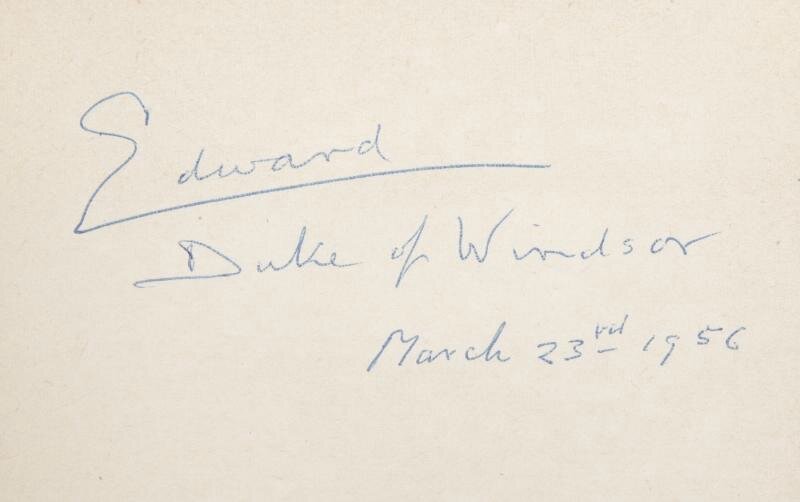 Edward
Duke of Windsor
March 23rd 1956